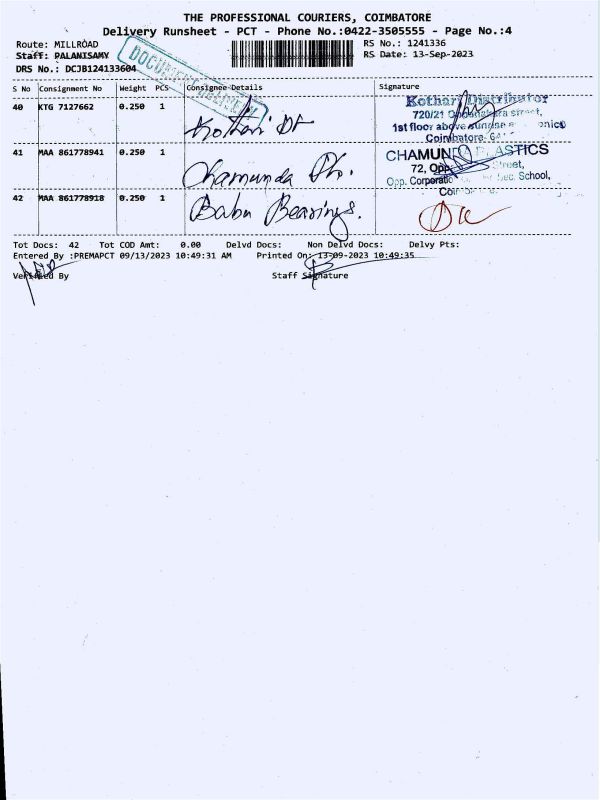 THE PROFESSIONAL COURIERS, COIMBATORE
Delivery Runsheet - PCT - Phone No.:0422-3505555 - Page No.:4
Route: MILLROAD
RS No.: 1241336
Staff: PALANISAMY
RS Date: 13-Sep-2023
DRS No.: DCJB124133604
DOCUMENT
S No Consignment No Weight PCS Consignee Details Signature
40 KTG 7127662 0.250 1
Kothari Dt
Kothari Distributor
720/21 street,
1st floor above sunrise
Coimbatore
41 MAA 861778941 0.250 1
Chamunda
CHAMUNDA PLASTICS
72, Opp. Street,
Opp. Corporatio Sec. School,
42 MAA 861778918 0.250 1
Babu Bearings.
Tot Docs: 42 Tot COD Amt: 0.00 Delvd Docs: Non Delvd Docs: Delvy Pts:
Entered By :PREMAPCT 09/13/2023 10:49:31 AM Printed On: 13-09-2023 10:49:35
Verified By Staff Signature